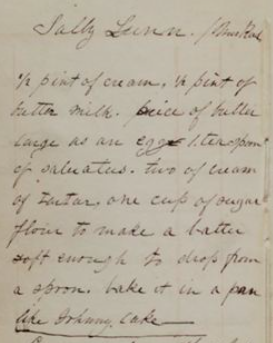 Sally Lunn.
½ pint of cream, ½ pint of
butter milk. piece of butter
large as an egg 1. tea spoon
of saleratus. two of cream
of tartar, one cup of sugar
flour to make a batter
soft enough to drop from
a spoon. bake it in a pan
like Johnny cake